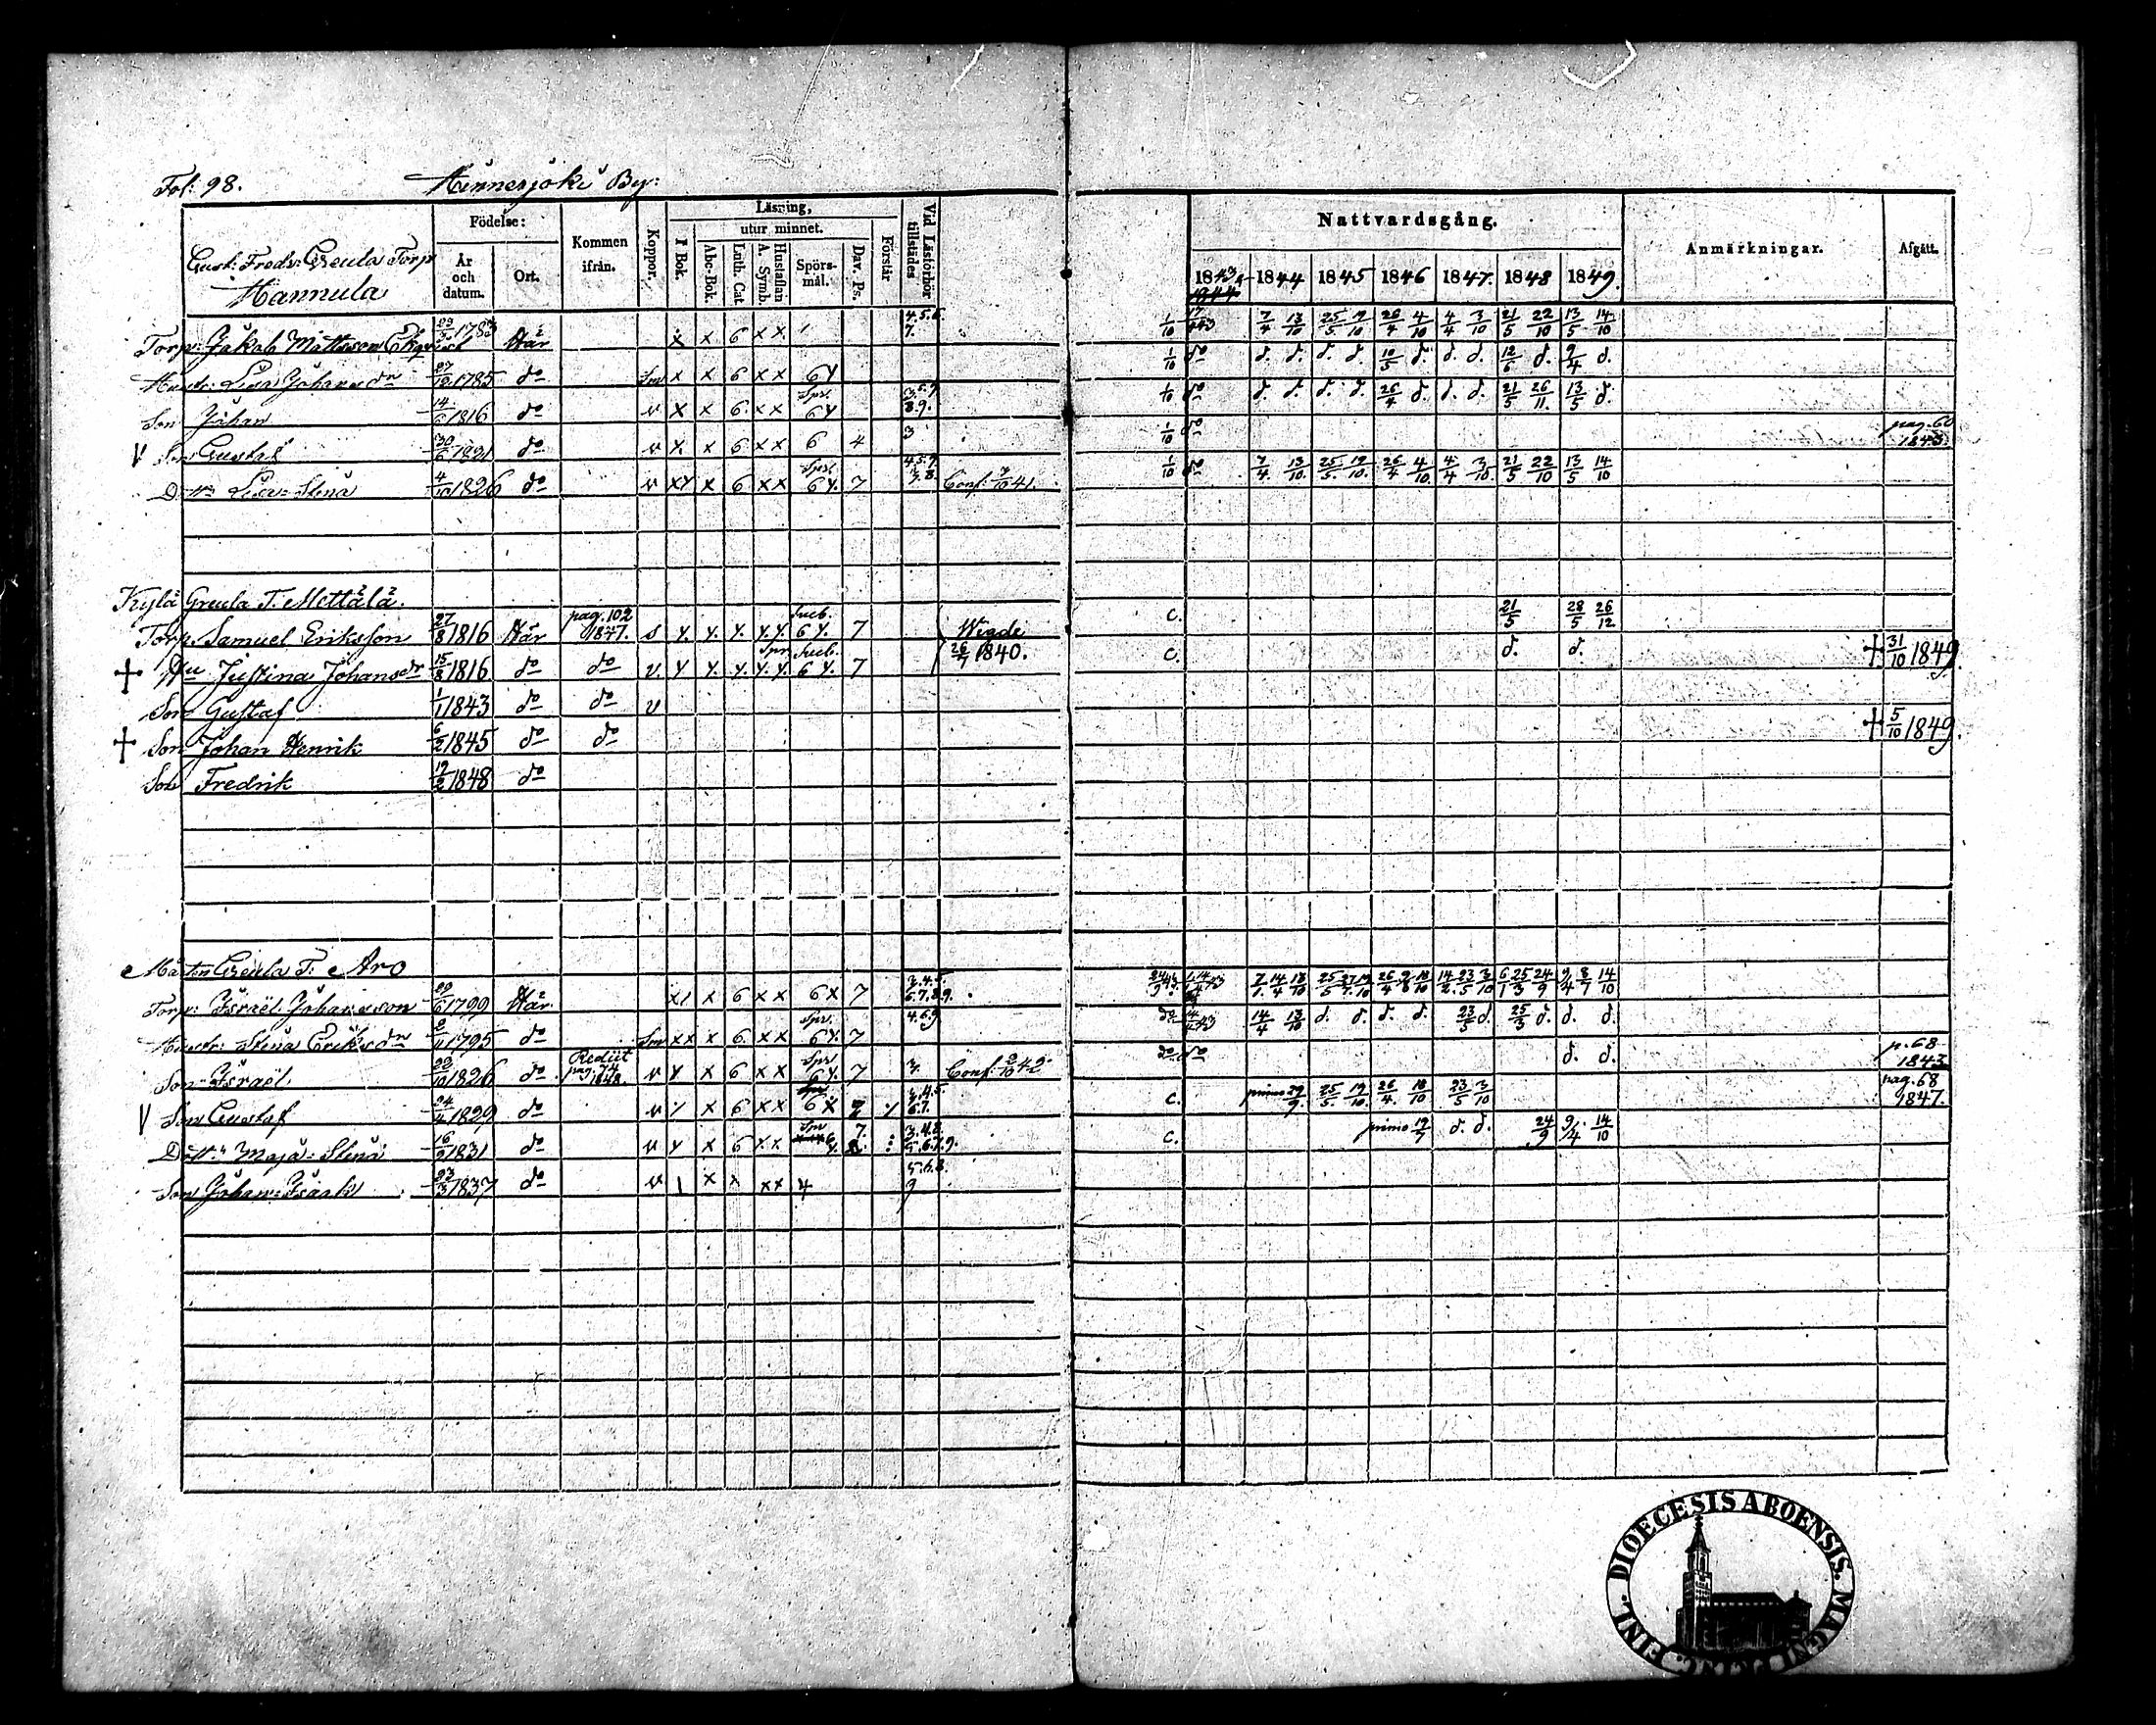 Fol: 98. Hinnerjoki By:
Gust: Freds: Greula Torp
Hannula
Födelse:
År och datum.
Ort.
Kommen ifrån.
Koppor.
Läsning,
utur minnet.
I Bok.
Abc-Bok.
Luth. Cat.
A. Symb.
Hustaflan
Spörsmål.
Dav. Ps.
Förstår
Vid Läsförhör tillstädes
Nattvardsgång.
1843 1844 1845 1846 1847. 1848 1849.
Anmärkningar.
Afgått.
Torp: Jakob Mattsson Ekqvist 1783 Här x x 6 x x 4.5.6. 7. 1/10 17/4 43 7/4 13/10 25/5 19/10 26/4 4/10 4/4 3/10 21/5 22/10 13/5 14/10
Hustr: Lisa Johansdr 27/12 1785 do x x 6 x x 6 y 1/10 do d. d. d. d. 10/5 d. d. d. 12/6 d. 9/4 d.
Son Johan 14/6 1816 do v x x 6 x x Spr. 6 y 3.6.7 8.9. 1/10 do d. d. d. d. 26/4 d. d. d. 21/5 26/11. 13/5 d.
V Son Gustaf 30/6 1821 do v y. x 6 x x 6 4 3 1/10 do pag. 60 1843.
Dottr Lisa Stina 4/10 1826 do v x y x 6 x x Spr. 6 y. 7 4.5.9 7.8. Conf: 3/10 41. 1/10 do 7/4. 13/10. 25/5. 19/10. 26/4 4/10. 4/4 3/10. 21/5 22/10 13/5 14/10
Kylä Greula T. Mettälä.
Torp. Samuel Eriksson 27/8 1816 Här pag. 102 1847. s y. y. y. y. y. Sueb. 6 y. 7 Wigde C. 21/5 28/5 26/12
† Hu Justina Johansdr 15/8 1816 do do v. y y. y. y. y. Spr Sueb. 6 y. 7 26/7 1840. C. d. d. † 31/10 1849.
Son Gustaf 1/1 1843 do do v
† Son Johan Henrik 6/2 1845 do do † 5/10 1849.
Son Fredrik 19/2 1848 do
Mårten Greula T: Aro
Torp: Israël Johansson 1799 Här x 1 x 6 x x 6 x 7 3.4.5. 6.7.8.9. 7/1. 14/4 13/10 25/5 27/7. 19/10 26/4 9/8 18/10 14/2. 23/5 3/10 6/1 25/3 24/9 9/4 8/7 14/10
Hustr: Stina Eriksdr 1795 do x x x 6 x x Spr. 6 y. 7 4.6.9 do 14/4 13/10 d. d. d. d. 23/5 d. 25/3 d. d. d.
Son Israël 22/10 1826 do Rediit pag. 74 1848. v y x 6 x x Spr 6 y. 7 3. Conf: 2/10 42. do do d. d. p. 68 1843
V Son Gustaf 24/4 1829 do v x 6 x x 6 x 7 6.7. C. primo 29/9. 25/5. 19/10. 26/4. 18/10 23/5 3/10 pag. 68 1847.
Dott: Maja Stina 16/9 1831 do v y x 6 x x Spr 7. 3.4.8. 5.6.7.9. C. primo 19/7 d. d. 24/9 9/4. 14/10
Son Johan Isaak 23/3 1837 do v 1 x x x x 4 5.6.8. 9
DIOECESIS ABOENSIS. MAGNI PRINC. FINL.